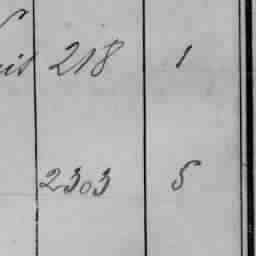 218 1
2303 5